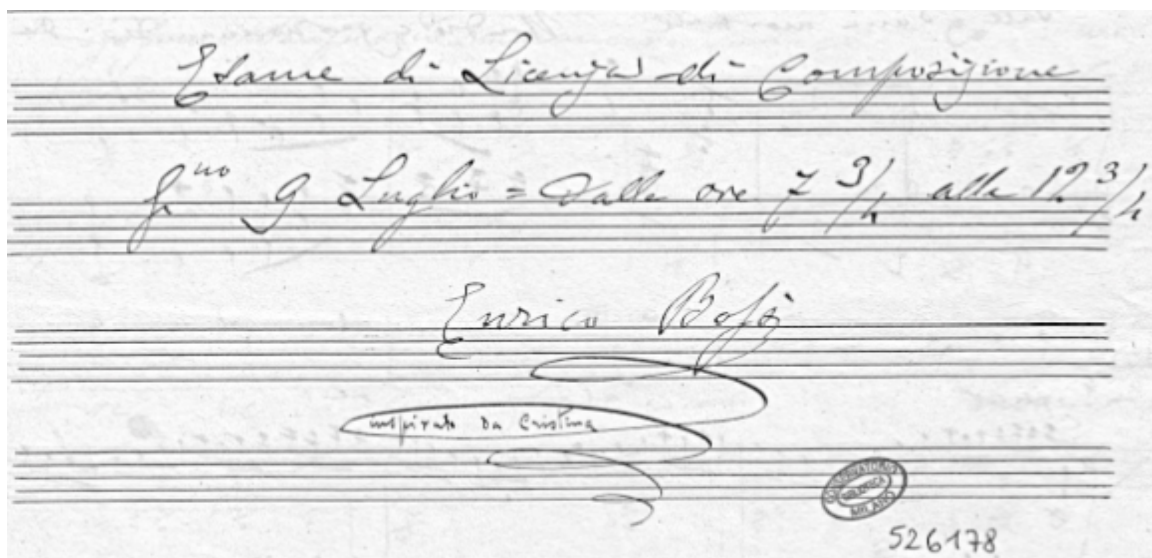 Esame di Licenza di Composizione
g.no 9 Luglio = Dalle ore 7 3/4 alle 12 3/4
Enrico Bossi
inspirato da Cristina
CONSERVATORIO
BIBLIOTECA
MILANO
526178